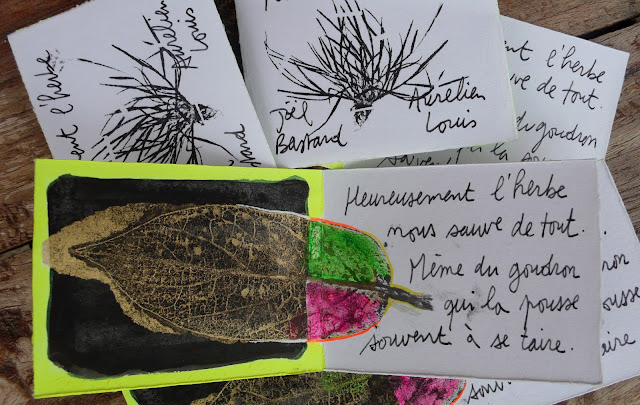 ent l'herbe
Aurélien
Louis
Joël
Bastard
Aurélien
Louis
ent l'herbe
uve de tout.
du goudron
Heureusement l'herbe
nous sauve de tout.
Même du goudron
qui la pousse
souvent à se taire.
ousse
aire
souv